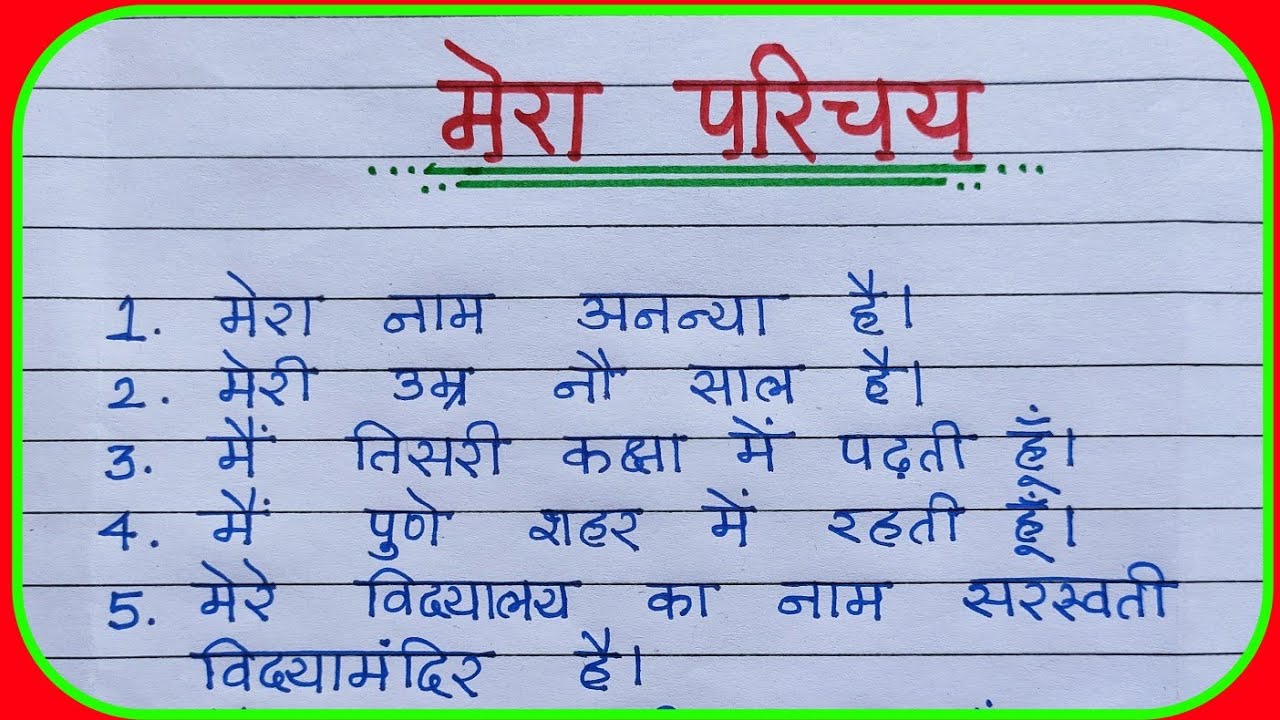 मेरा परिचय
1. मेरा नाम अनन्या है।
2. मेरी उम्र नौ साल है।
3. मैं तिसरी कक्षा में पढ़ती हूँ।
4. मैं पुणे शहर में रहती हूँ।
5. मेरे विद्यालय का नाम सरस्वती
विद्यामंदिर है।